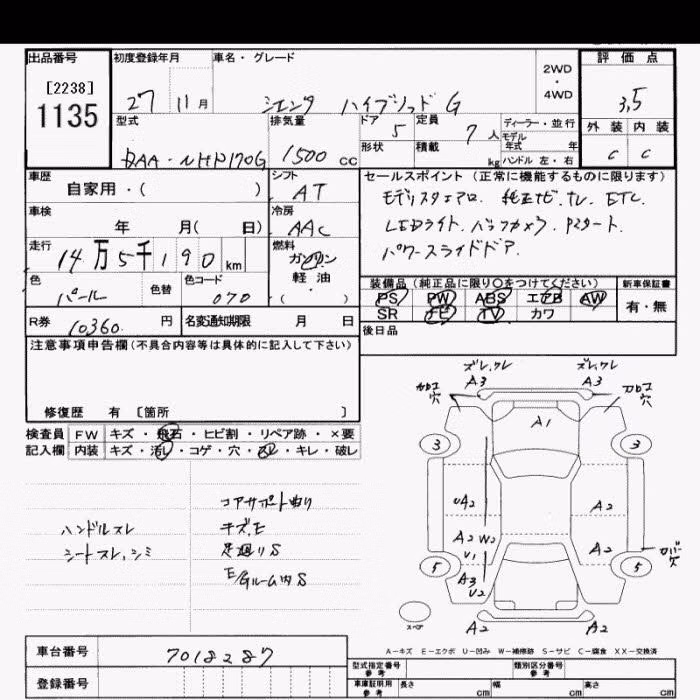 出品番号
[2238]
1135
初度登録年月
27 11月
車名・グレード
シエンタ ハイブリッド G
2WD
・
4WD
評価点
3.5
外装 内装
C C
型式
DAA-NHP170G
排気量
1500 CC
ドア
5
定員
7人
形状
積載
kg
ディーラー・並行
モデル
年式 年
ハンドル 左・右
車歴
自家用・( )
シフト
AT
車検
年 月( 日)
冷房
AAC
走行
14万5千190km
燃料
ガソリン
軽油
・
( )
色
パール
色替
色コード
070
R券
10360 円
名変通知期限 月 日
セールスポイント(正常に機能するものに限ります)
モデリスタエアロ. 純正ナビ. TV. ETC
LEDライト. バックカメラ. Pスタート.
パワースライドドア.
装備品(純正品に限り○をつけてください)
PS PW ABS エアB AW
SR ナビ TV カワ
新車保証書
有・無
後日品
注意事項申告欄(不具合内容等は具体的に記入して下さい)
修復歴 有 [箇所 ]
検査員 FW キズ・飛石・ヒビ割・リペア跡・×要
記入欄 内装 キズ・汚レ・コゲ・穴・スレ・キレ・破レ
コアサポト曲り
ハンドルスレ
キズ.E
シートスレ,シミ
足廻りS
E/Gルーム内S
ズレ,ワレ
ズレ,ワレ
A3
A3
カロコ
穴
カロコ
穴
A1
3
3
UA2
A2
A2 W2
A2
U1
カバー
欠
5
5
A3
U2
スペア
A2
A2
A-キズ E-エクボ U-凹み W-補修跡 S-サビ C-腐食 XX-交換済
車台番号
7018287
登録番号
型式指定番号
参考
類別区分番号
参考
車庫証明用
参考
長さ cm 幅 cm 高さ cm